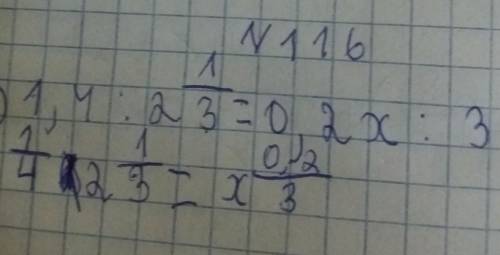 N 116
) 1,4 : 2 1/3 = 0,2x : 3
1/4 2 1/3 = x 0,2/3